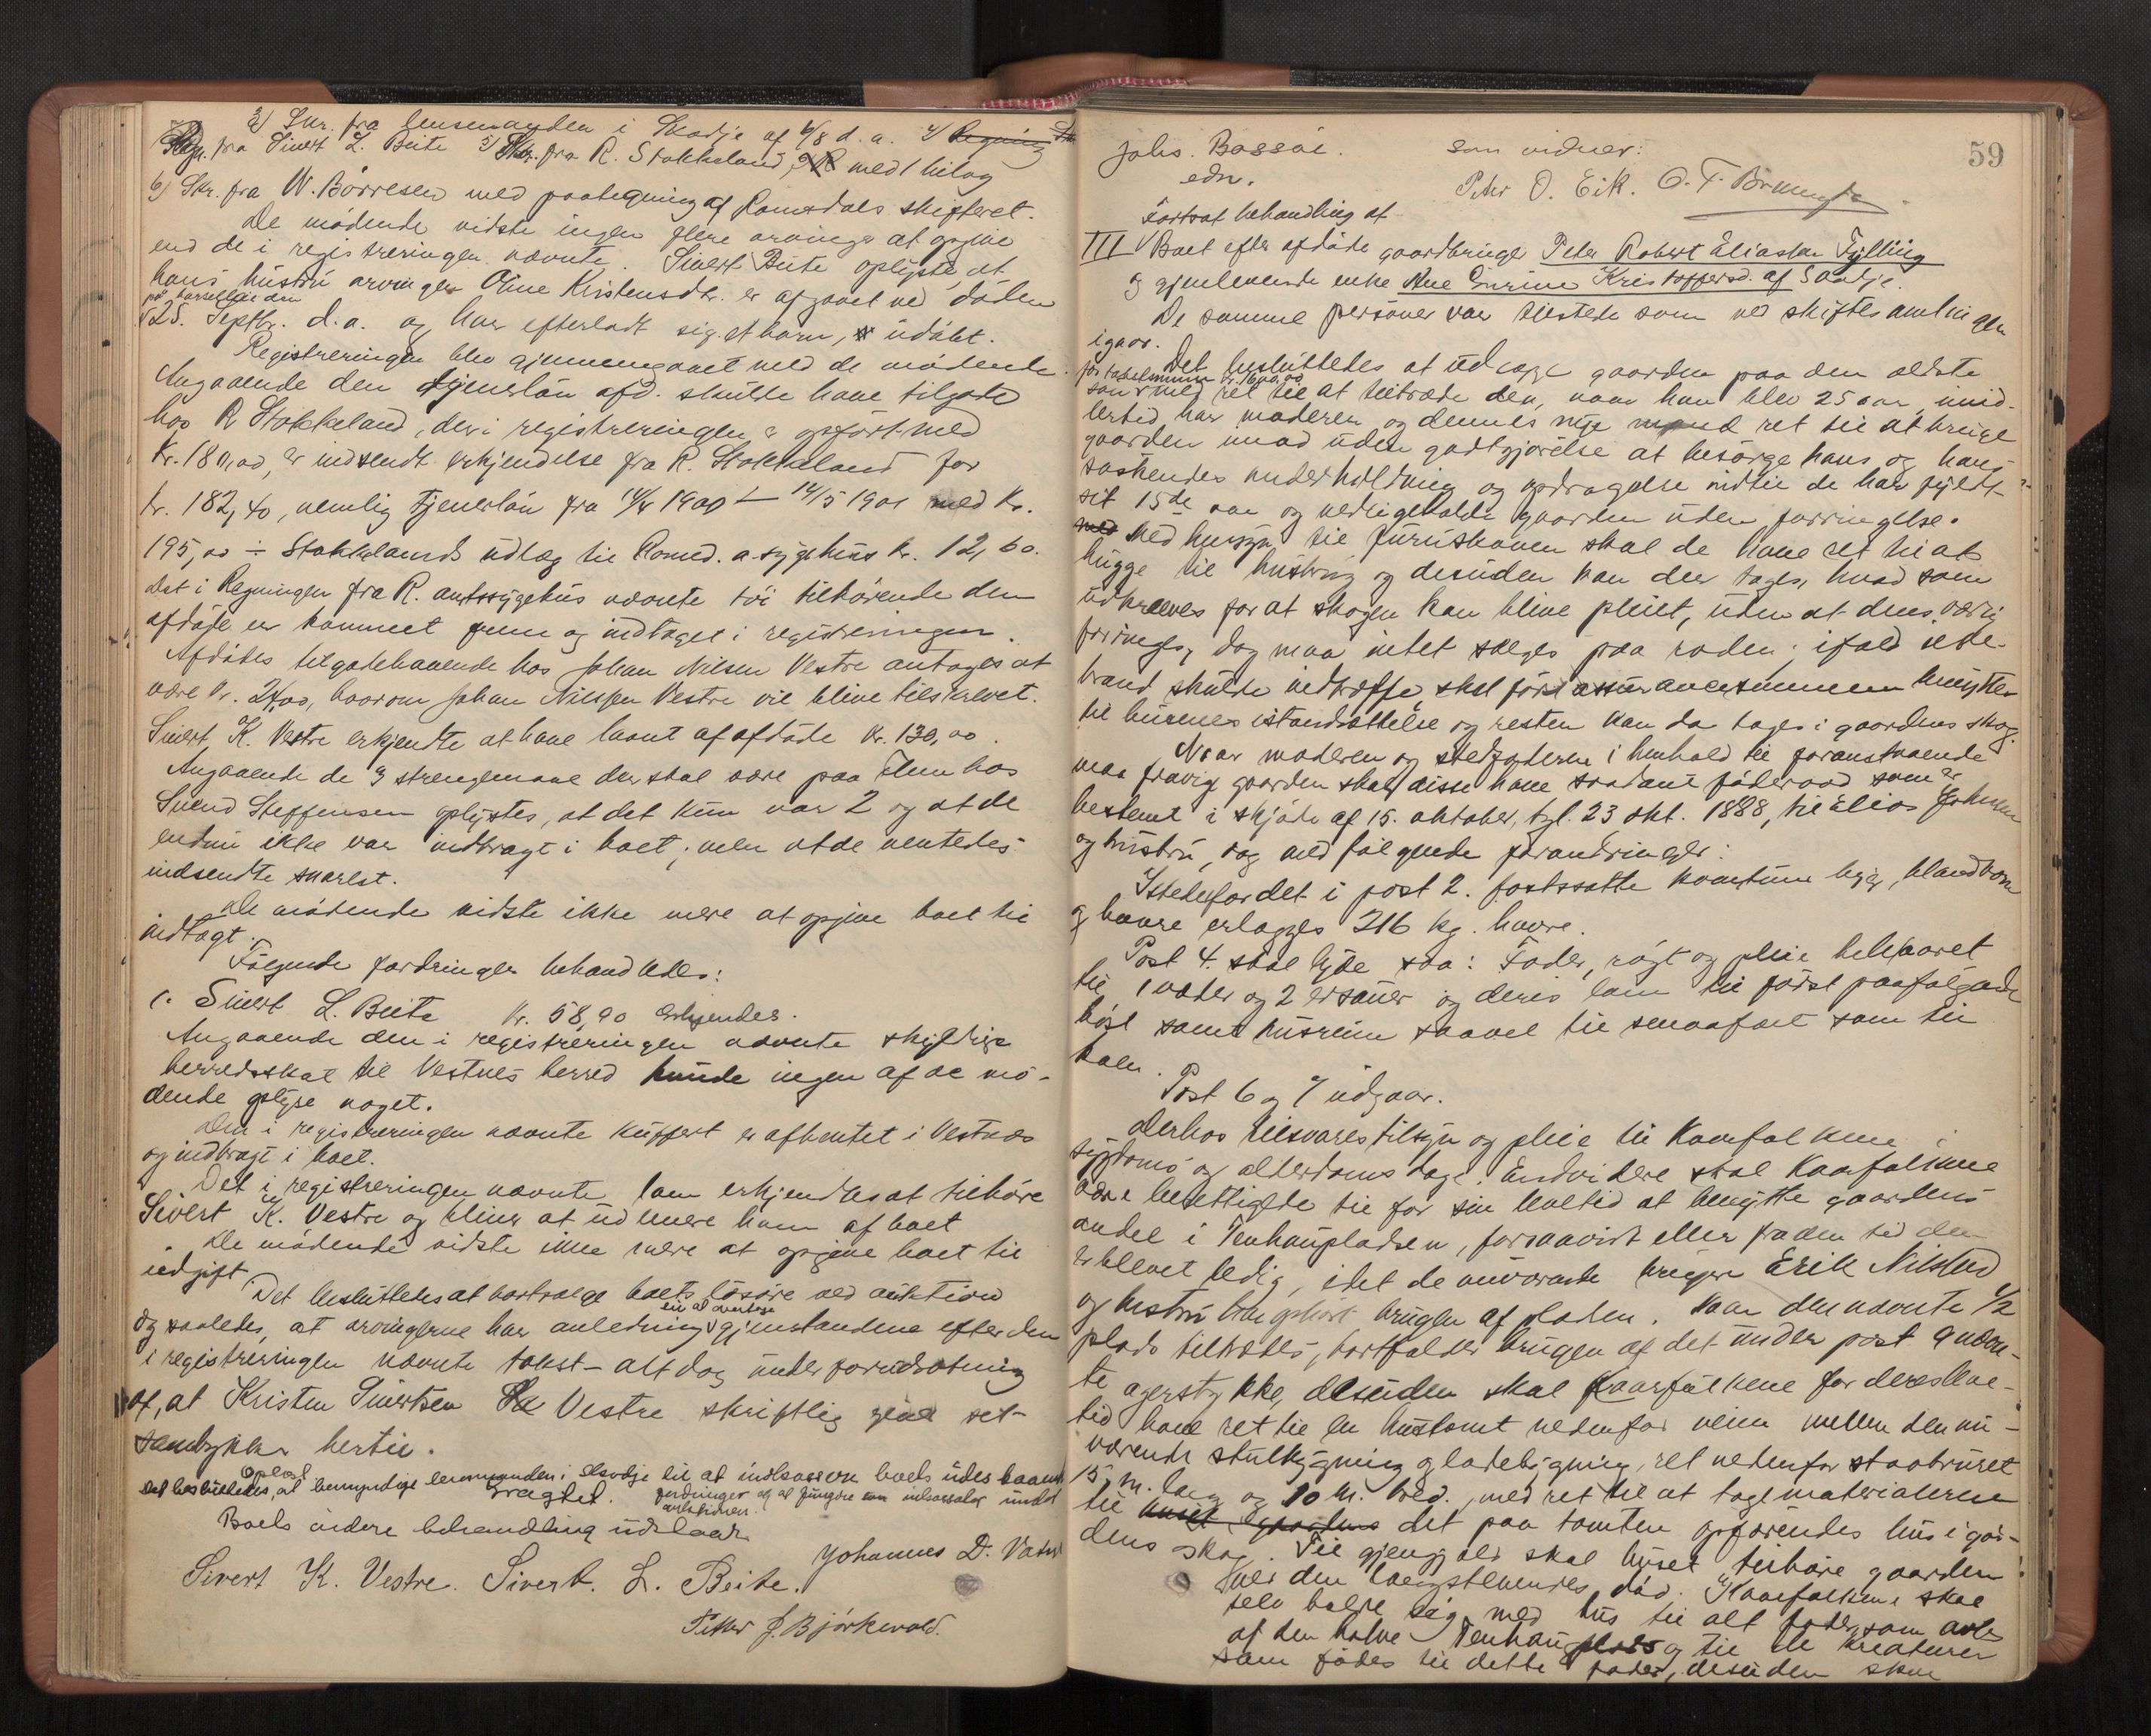 3) Skr. fra lensmanden i Skodje af 6/8 d.a. 4) Regning
Regn. fra Sivert L. Beite 5) Skr. fra R. Stokkeland, med 1 bilag
6) Skr. fra W. Börresen med paategning af Romsdals skifteret.
De mödende vidste ingen flere arvinge at opgive
end de i registreringen nævnte. Sivert Beite oplyste, at
hans hustru arvingen Oline Kristensdr. er afgaaet ved döden
på barselseng den
25. Septbr. d.a. og har efterladt sig et barn, udöbt.
Registreringen blev gjennemgaaet med de mödende.
Angaaende den tjenerlön afd. skulde have tilgode
hos R Stokkeland, der i registreringen er opfört med
Kr. 180,00, er indsendt erkjendelse fra R. Stokkeland for
kr. 182,40, nemlig tjenerlön fra 14/4 1900 - 14/5 1901 med Kr.
195,00 ÷ Stokkelands udlæg til Romsd. a. sygehus kr. 12,60.
Det i Regningen fra R. amtssygehus nævnte töi tilhörende den
afdöde er kommet frem og indtaget i registreringen.
Afdödes tilgodehavende hos Johan Nilsen Vestre antages at
være kr. 24,00, hvorom Johan Nilssen Vestre vil blive tilskrevet.
Sivert K. Vestre erkjendte at have laant af afdöde kr. 130,00.
Angaaende de 3 strenglemaal der skal være paa hos
Svend Steffensen oplystes, at det kun var 2 og at de
endnu ikke var indbragt i boet; men at de ventedes
indsendte snarest.
De mödende vidste ikke mere at opgive boet til
indtægt.
Fölgende fordringer behandledes:
1. Sivert L. Beite Kr. 58,90 erkjendes.
Angaaende den i registreringen nævnte skyldige
herredsskat til Vestnes herred kunde ingen af de mö-
dende oplyse noget.
Den i registreringen nævnte kuffert er afhentet i Vestnes
og indbragt i boet.
Det i registreringen nævnte lam erkjendtes at tilhöre
Sivert K. Vestre og bliver at udlevere ham af boet
De mödende vidste ikke mere at opgive boet til
udgift.
Det besluttedes at bortsælge boets lösöre ved auktion
til at overtage
dog saaledes, at arvingerne har anledning gjenstandene efter den
i registreringen nævnte takst - alt dog under forudsætning
af, at Kristen Sivertsen Vestre skriftlig giver sit
samtykke hertil.
Det besluttedes, at bemyndige lensmanden i Skodje til at indkassere boets udestaaende
fordringer og at fungere som inkassator under
auktionen.
Oplæst
vedtaget.
Boets videre behandling udstaar
Johannes D. Vatne
Sivert K. Vestre. Sivert. L. Beite.
Petter J. Björkevold.
59
Johs. Bassöe. som vidner:
edv.
Peter O. Eik. O. T.
Fortsat behandling af
III Boet efter afdöde gaardbruger Peter Robert Eliassen Fylling
og gjenlevende enke Ane Enrine Kristoffersd. af Skodje.
De samme personer var tilstede som ved skiftesamlingen
igaar.
Det besluttedes at udlægge gaarden paa den ældste
for takstsummen kr. 1600,00
sön med ret til at tiltræde den, naar han blev 25 aar, imid-
lertid har moderen og dennes nye mand ret til at bruge
gaarden imod uden godtgjörelse at besörge hans og hans
söskendes underholdning og opdragelse indtil de har fyldt
sit 15de aar og vedligeholde gaarden uden forringelse.
Med hensyn til furuskoven skal de have ret til at
hugge til husbrug og desuden kan der tages, hvad som
udkræves for at skogen kan blive pleiet, uden at dens værdi
forringes, dog maa intet sælges paa roden; ifald ilde-
brand skulde indtræffe, skal först assurancesummen benyttes
til husenes istandsættelse og resten kan da tages i gaardens skog.
Naar moderen og stedfaderen i henhold til foranstaaende
maa fravige gaarden skal disse have saadant föderaad som er
bestemt i skjöde af 15. oktober, tgl. 23 okt. 1888, til Elias Johnsen
og hustru, dog med fölgende forandringer:
Istedetfor det i post 2. fastsatte kvantum byg, blandkorn
og havre erlægges 216 kg. havre.
Post 4. skal lyde saa: Foder, rögt og pleie helaaret
til 1 voder og 2 ersauer og deres lam til först paafölgende
höst samt husrum saavel til smaafæet som til
koen.
Post 6 og 7 udgaar.
Derhos tilsvares tilsyn og pleie til kaarfolkene i
sygdoms og alderdoms dage. Endvidere skal kaarfolkene
være berettigede til for sin levetid at benytte gaardens
andel i Tenhaugpladsen, forsaavidt eller fra den tid den
er blevet ledig, idet de nuværende brugere Erik Nilsen
og hustru brugen af pladsen. Naar den nævnte 1/2
plads tiltrædes, bortfalder brugen af det under post 9 nævn-
te agerstykke, desuden skal kaarfolkene for deres leve-
tid have ret til en hustomt nedenfor veien mellem den nu-
værende stuebygning og ladebygning, ret nedenfor staburet
15 m. lang og 10 m. bred, med ret til at tage materialerne
til det paa tomten opförendes hus i gaar-
dens skog. Til gjengjæld skal huset tilhöre gaarden
ved den længstlevendes död. Kaarfolkene skal
selv holde sig med hus til alt foder som avles
af den halve Tenhaugplads og til de kreaturer
som födes til dette foder, desuden skal